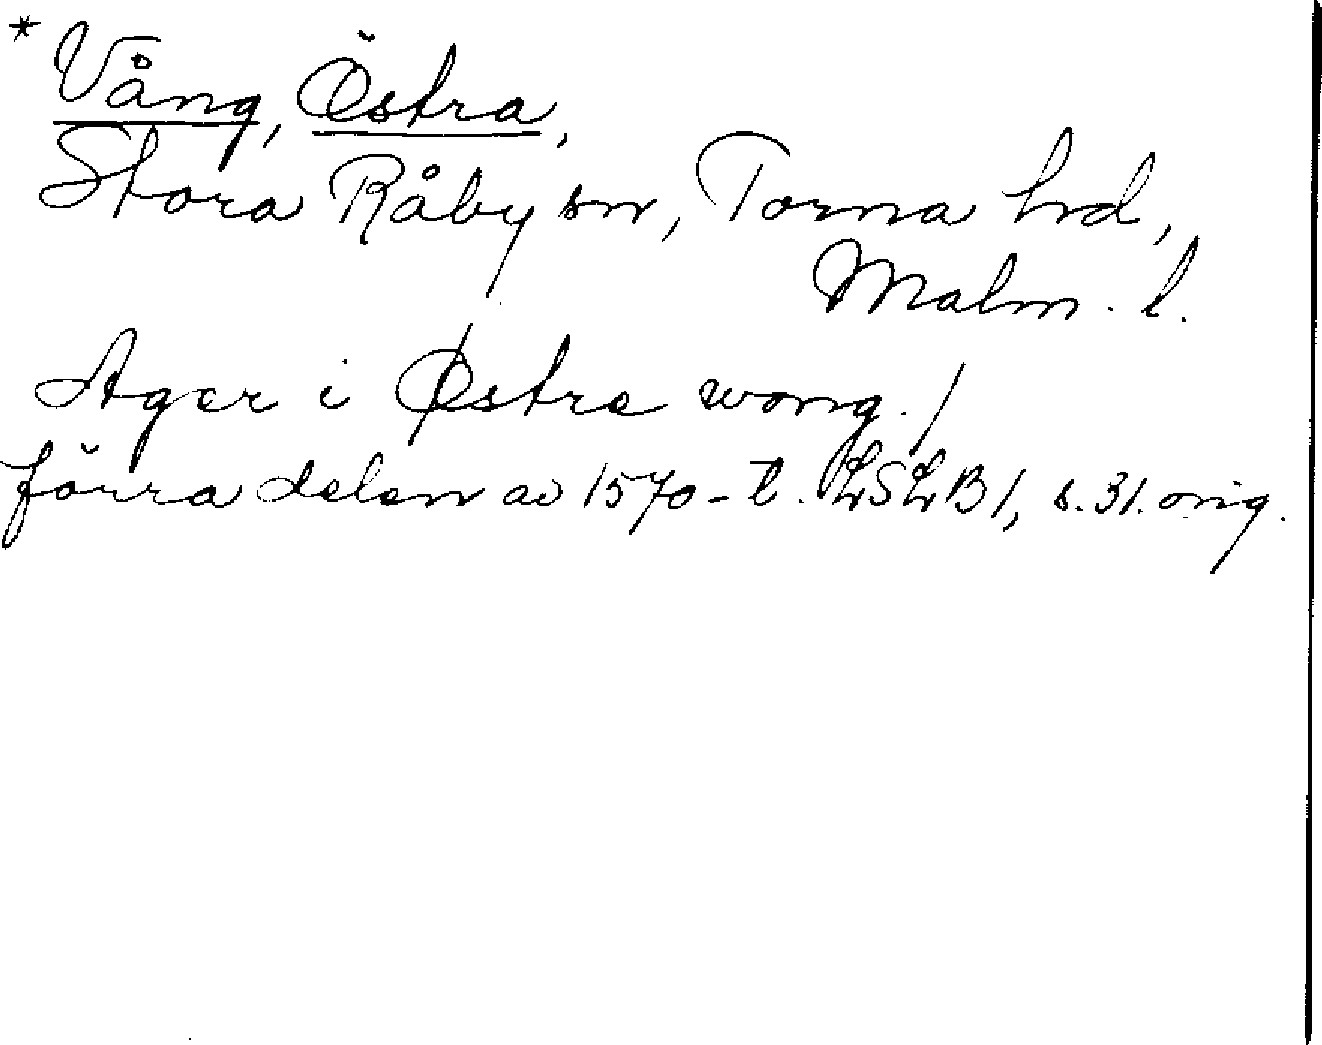 * Vång, Östra,
Stora Råby sn, Torna hd,
Malm. l.
Ager i Østre wong. /
förra delen av 1570-t. LSLB 1, s. 31. orig.